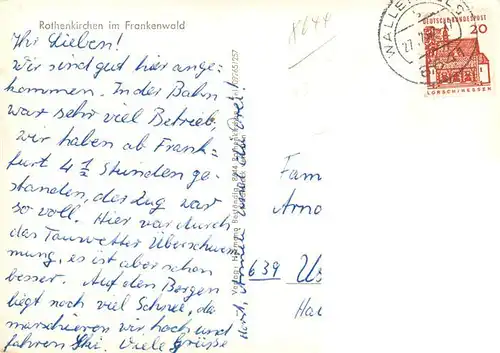 Rothenkirchen im Frankenwald
8644
Ihr Lieben!
Wir sind gut hier ange-
kommen. In der Bahn
war sehr viel Betrieb,
wir haben ab Frank-
furt 4 1/2 Stunden ge-
standen, der Zug war
so voll. Hier war durch
das Tauwetter Überschwem-
mung, es ist aber schon
besser. Auf den Bergen
liegt noch viel Schnee, da
marschieren wir hoch und
fahren Ski. Viele Grüße
Horst, und die drei!
Verlag: Hermann
WALLENFELS
DEUTSCHE BUNDESPOST
20
LORSCH/HESSEN
Fam
Arno
639 Us
Hau